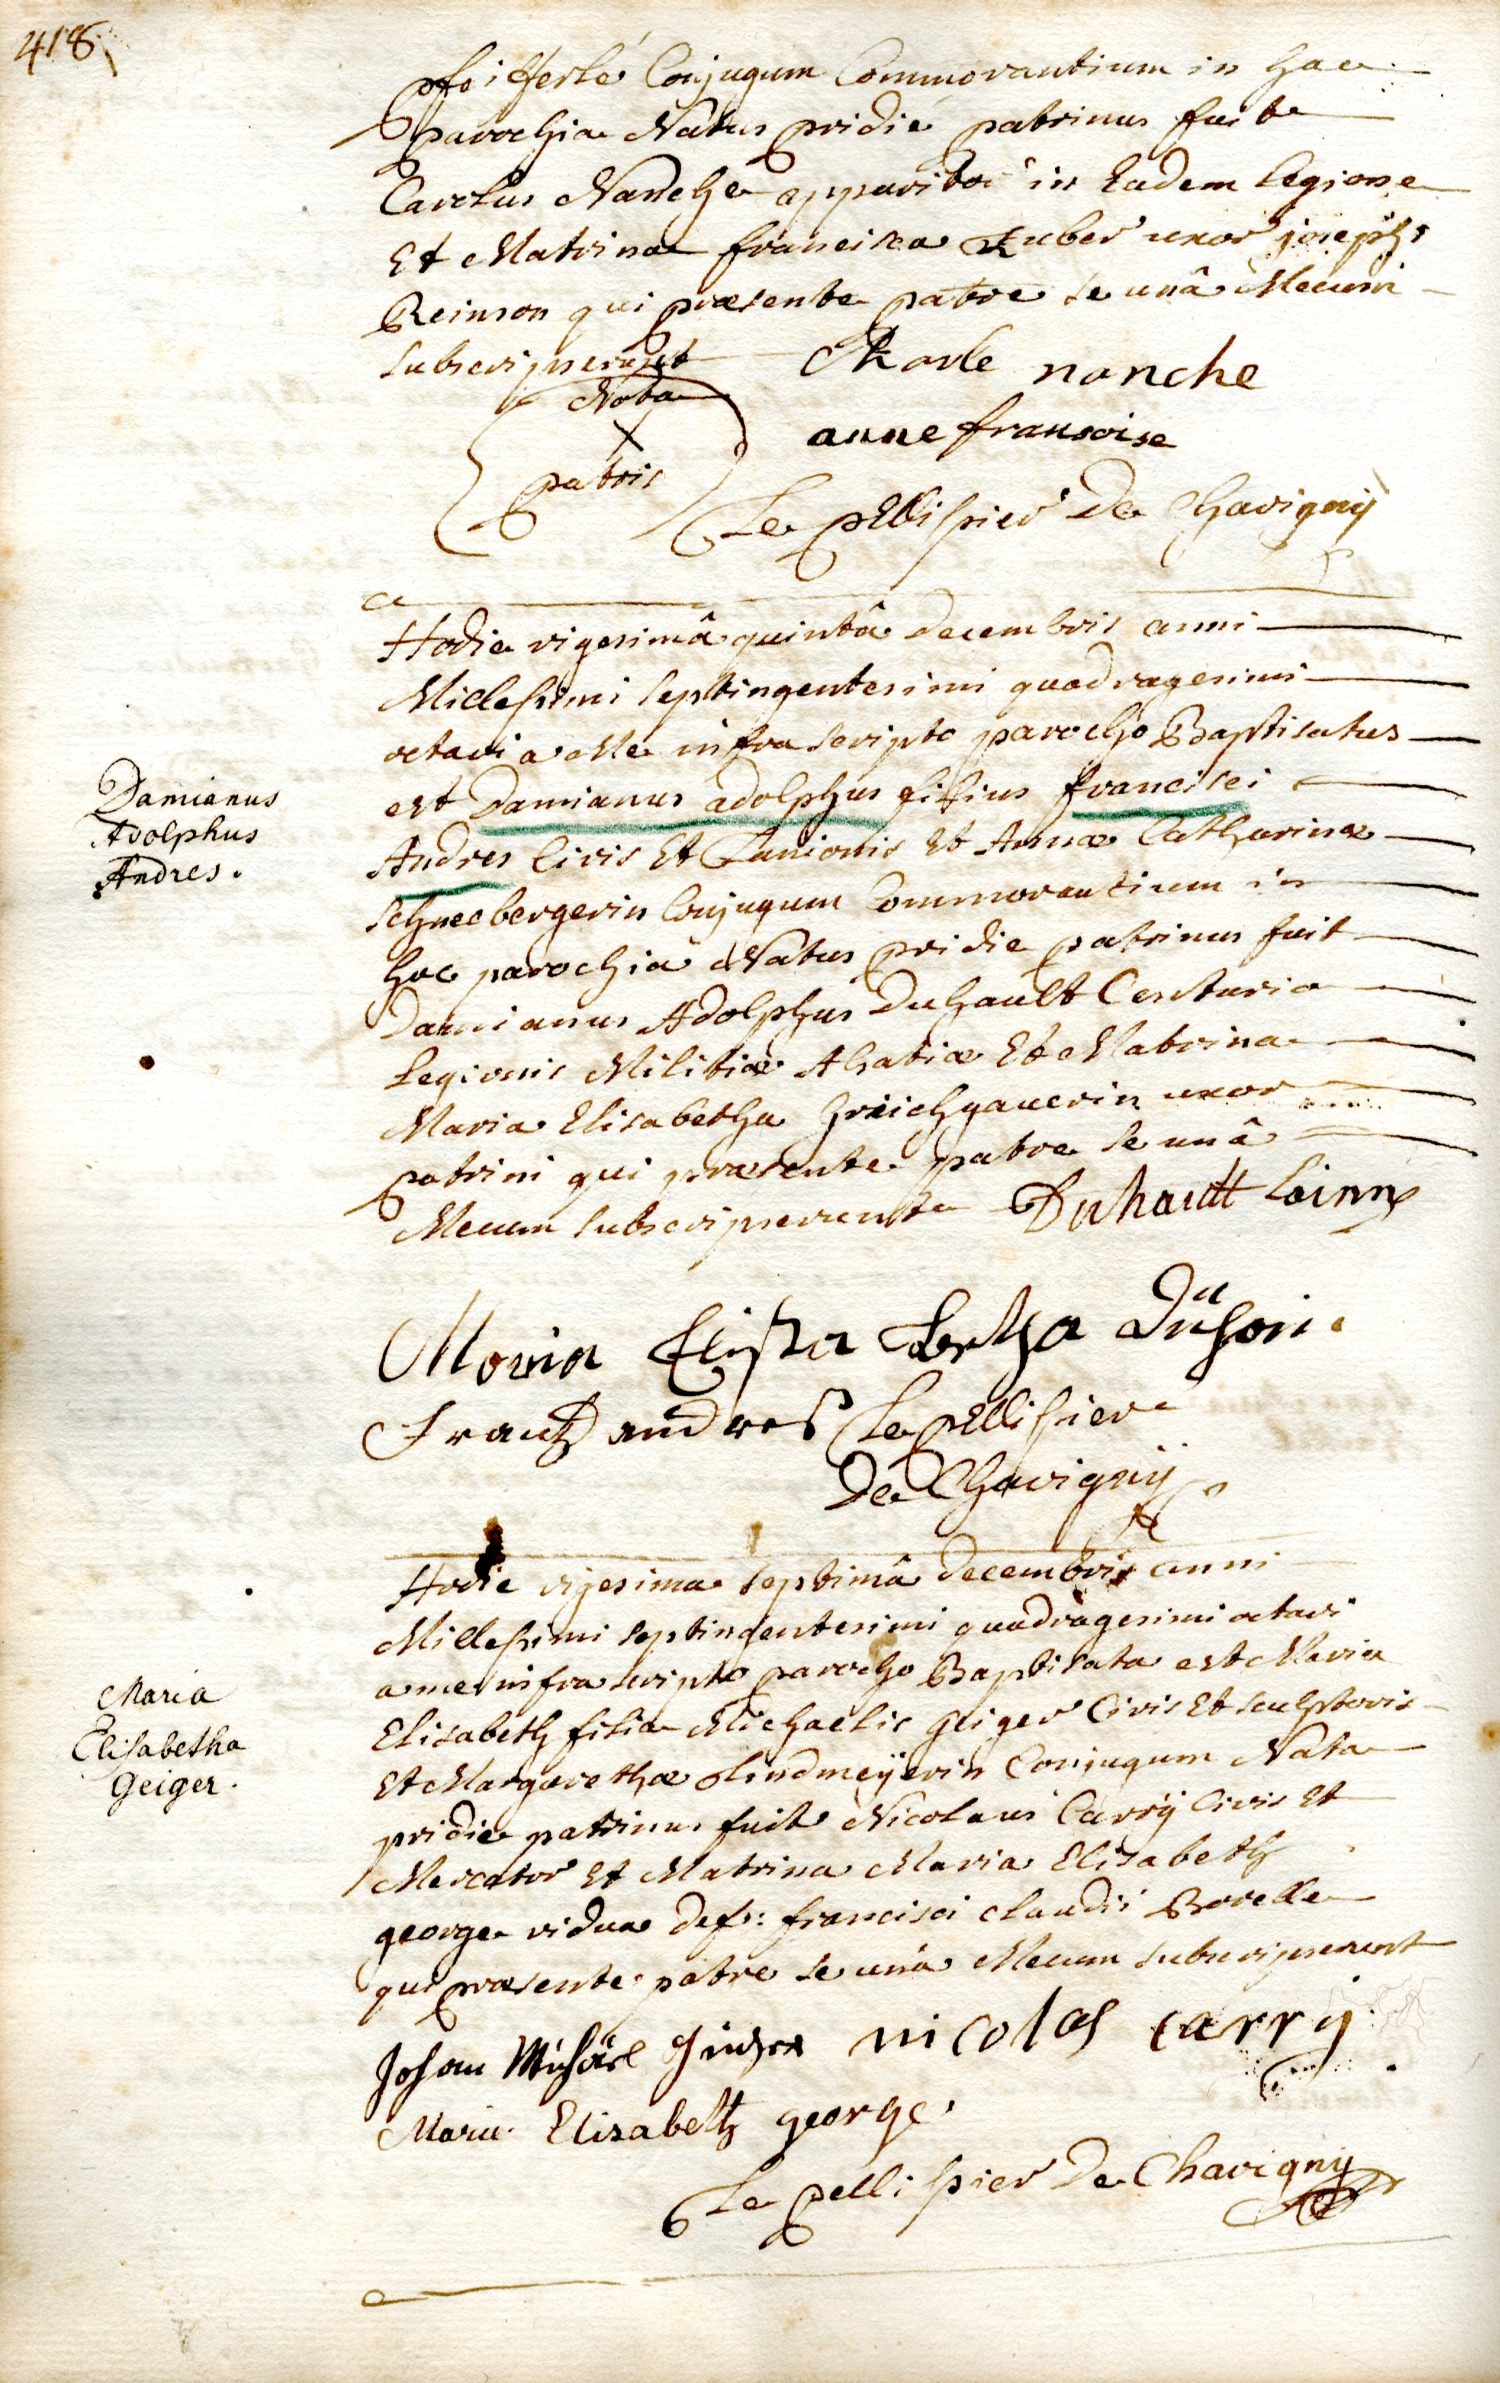 418
pfeifferlé Conjugum Commorantium in hac
parochia Natus pridie patrinus fuit
Carolus Nanche apparitor in Eadem legione
Et Matrina francisca Huber uxor josephi
Reinson qui præsente patre se unâ Mecum
subscripserunt Charle nanche
Nota
X
patris
anne fransoise
Le pellissier De Chavigny
Hodie vigesimâ quintâ decembris anni
Millesimi septingentesimi quadragesimi
octavi a Me infra scripto parocho Baptisatus
est Damianus adolphus filius francisci
Andres Civis Et Lanionis Et Annæ Catharinæ
Schneebergerin Conjugum Commorantium in
hac parochiâ Natus pridie patrinus fuit
Damianus Adolphus Duhault Centurio
Legionis Militiæ Alsatiæ Et Matrina
Maria Elisabetha uxor
patrini qui præsente patre se unâ
Mecum subscripserunt Duhault
Maria Elisabetha
Frantz andres Le pellissier
De Chavigny
Damianus
Adolphus
Andres.
Hodie vigesima septimâ decembris anni
Millesimi septingentesimi quadragesimi octavi
a me infra scripto parocho Baptisata est Maria
Elisabeth filia Michaelis geiger Civis Et sculptoris
Et Margarethæ Lindmeÿerin Conjugum Nata
pridie patrinus fuit Nicolaus Carrÿ Civis Et
Mercator Et Matrina Maria Elisabeth
george vidua def: francisci claudii Borelle
qui præsente patre se unâ Mecum subscripserunt
Maria
Elisabetha
Geiger.
Johan Michäel geiger nicolas carry
Maria Elisabeth george
Le pellissier De Chavigny